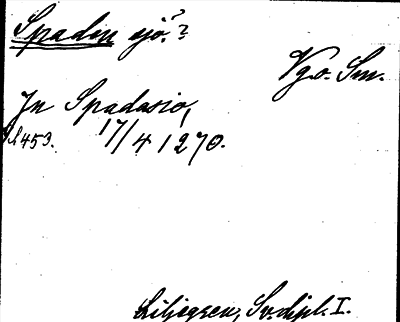 Spaden sjö.?
Vgo. Sm.
In Spadasio,
S. 453. 17/4 1270.
Liljegren, Sv. dipl. I.